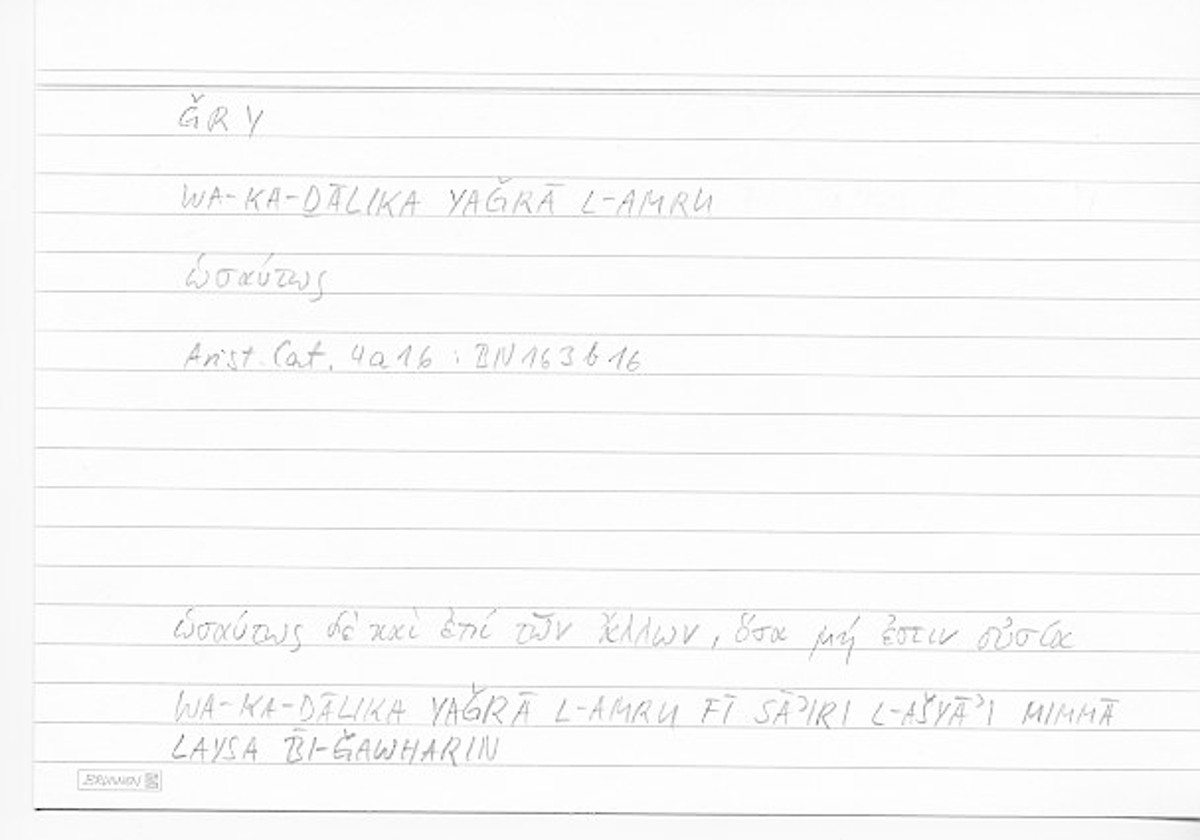 ǦRY
WA-KA-ḎĀLIKA YAǦRĀ L-AMRU
ὡσαύτως
Arist. Cat. 4a16 : BN 163b16
ὡσαύτως δὲ καὶ ἐπὶ τῶν ἄλλων, ὅσα μή ἐστιν οὐσία
WA-KA-ḎĀLIKA YAǦRĀ L-AMRU FĪ SĀʾIRI L-AŠYĀʾI MIMMĀ
LAYSA BI-ǦAWHARIN
BRUNNEN